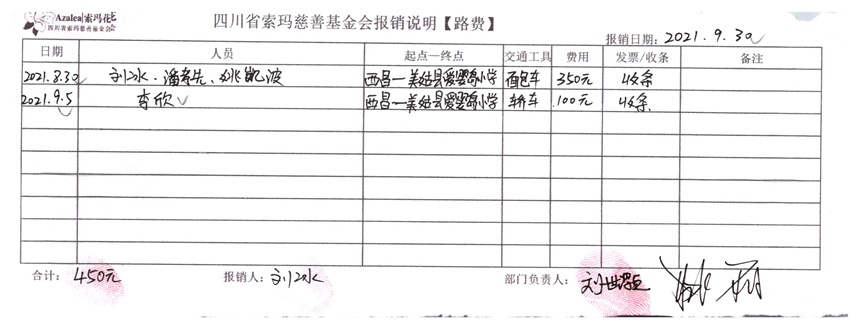 Azalea|索玛花
四川省索玛慈善基金会
四川省索玛慈善基金会报销说明【路费】
报销日期：2021.9.30
日期 人员 起点—终点 交通工具 费用 发票/收条 备注
2021.8.30 刘冰、潘 、姚凯波 西昌—美姑县爱 小学 面包车 350元 收条
2021.9.5 李欣 西昌—美姑县爱 小学 轿车 100元 收条
合计： 450元 报销人： 刘冰 部门负责人： 刘世